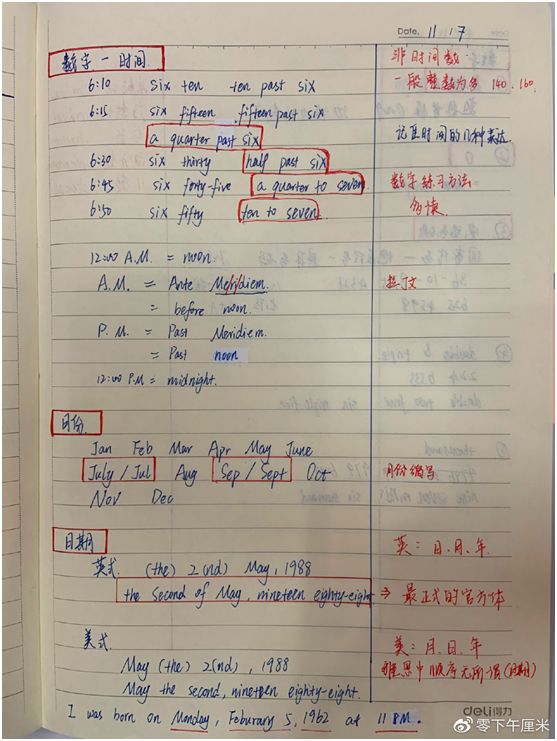 Date. 11 17
数字 — 时间
6:10 six ten ten past six
6:15 six fifteen fifteen past six
a quarter past six
6:30 six thirty half past six
6:45 six forty-five a quarter to seven
6:50 six fifty ten to seven
非时间数:
一般整数为多 140. 160.
记住时间的几种表达
数字练习方法
多快
12:00 A.M. = noon
A.M. = Ante Meridiem
= before noon.
P.M. = Past Meridiem.
= Past noon
12:00 P.M = midnight.
拉丁文
月份
Jan Feb Mar Apr May June
July / Jul Aug Sep / Sept Oct
Nov Dec
月份缩写
日期
英式. (the) 2(nd) May, 1988
the second of May, nineteen eighty-eight
英: 日. 月. 年
⇒ 最正式的官方体
美式.
May (the) 2(nd), 1988
May the second, nineteen eighty-eight.
美: 月. 日. 年
雅思中顺序无所谓(日期)
I was born on Monday, Feburary 5, 1962 at 11 P.M.
deli得力
零下午厘米